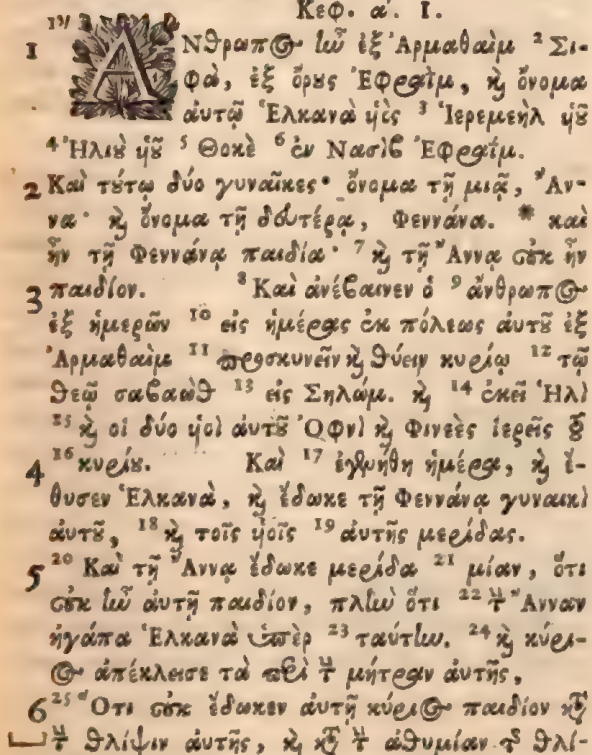 Κεφ. α΄. I.
1 ΑΝθρωπος ἦν ἐξ Ἀρμαθαὶμ 2 Σι-
φὰ, ἐξ ὄρους Ἐφραῒμ, καὶ ὄνομα
ἀυτῷ Ἑλκανὰ ὑὸς 3 Ἱερεμεὴλ ὑοῦ
4 Ἠλιοὺ ὑοῦ 5 Θοκὲ 6 ἐν Νασὶβ Ἐφραῒμ.
2 Καὶ τούτῳ δύο γυναῖκες· ὄνομα τῇ μιᾷ, Ἄν-
να· καὶ ὄνομα τῇ δευτέρᾳ, Φεννάνα. * καὶ
ἦν τῇ Φεννάνᾳ παιδία· 7 καὶ τῇ Ἄννᾳ οὐκ ἦν
παιδίον.
3 8 Καὶ ἀνέβαινεν ὁ 9 ἄνθρωπος
ἐξ ἡμερῶν 10 εἰς ἡμέρας ἐκ πόλεως ἀυτοῦ ἐξ
Ἀρμαθαὶμ 11 προσκυνεῖν καὶ θύειν κυρίῳ 12 τῷ
θεῷ σαβαὼθ 13 εἰς Σηλώμ. καὶ 14 ἐκεῖ Ἡλὶ
15 καὶ οἱ δύο ὑοὶ ἀυτοῦ Ὀφνὶ καὶ Φινεὲς ἱερεῖς τοῦ
16 κυρίου.
4 Καὶ 17 ἐγενήθη ἡμέρα, καὶ ἔ-
θυσεν Ἑλκανὰ, καὶ ἔδωκε τῇ Φεννάνᾳ γυναικὶ
ἀυτοῦ, 18 καὶ τοῖς ὑοῖς 19 ἀυτῆς μερίδας.
5 20 Καὶ τῇ Ἄννᾳ ἔδωκε μερίδα 21 μίαν, ὅτι
οὐκ ἦν ἀυτῇ παιδίον, πλὴν ὅτι 22 τὴν Ἄνναν
ἠγάπα Ἑλκανὰ ὑπὲρ 23 ταύτην. 24 καὶ κύρι-
ος ἀπέκλεισε τὰ περὶ τὴν μήτραν ἀυτῆς,
6 25 Ὅτι οὐκ ἔδωκεν ἀυτῇ κύριος παιδίον κατὰ
τὴν θλίψιν ἀυτῆς, καὶ κατὰ τὴν ἀθυμίαν τῆς θλί-